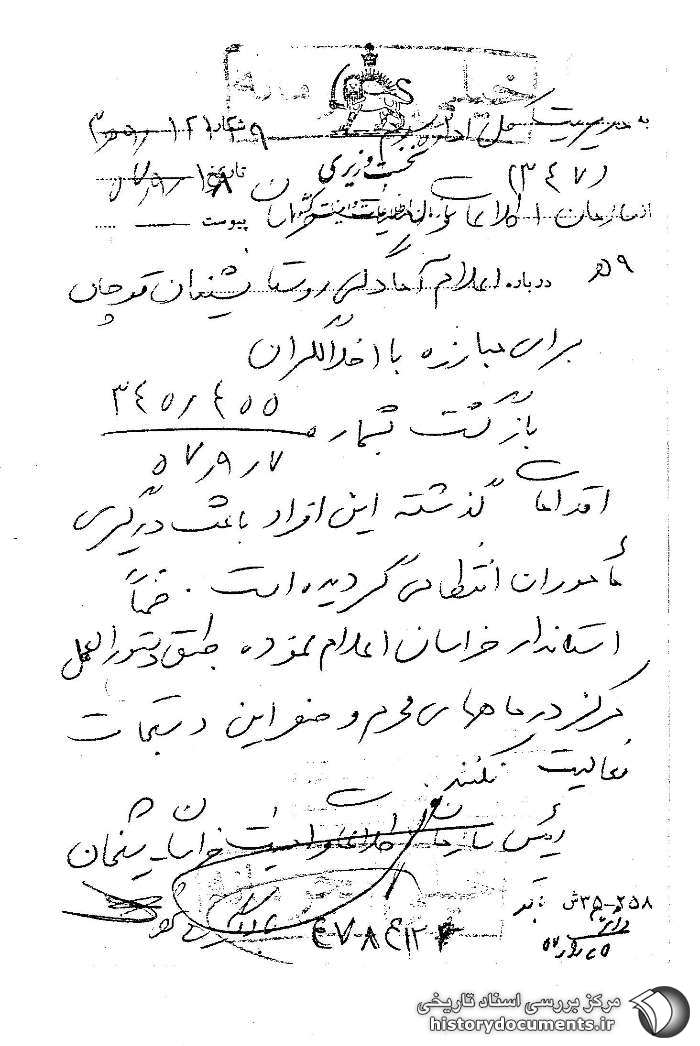 خیلی محرمانه
به مدیریت کل اداره سوم
نخست وزیری
شماره
(۳۴۷)
تاریخ
از سازمان اطلاعات و امنیت خراسان
پیوست
۹ هـ
درباره اعلام آمادگی روستا نشینان قوچان
برای مبارزه با اخلالگران
بازگشت بشماره ۳۴۵/۴۵۵
۵۷/۹/۷
اقدامات گذشته این افراد باعث درگیری
مأموران انتظامی گردیده است. ضمناً
استاندار خراسان اعلام نموده طبق دستورالعمل
مرکز در ماههای محرم و صفر این دستجات
فعالیت نکنند.
رئیس سازمان اطلاعات و امنیت خراسان - شیخان
۳۵-۲۵۸ش
مرکز بررسی اسناد تاریخی
historydocuments.ir